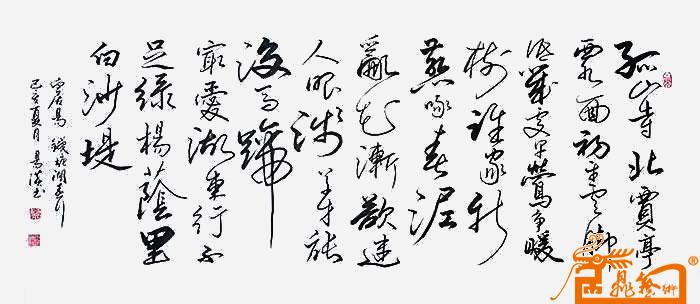 孤山寺北賈亭
西水面初平雲腳
低幾處早鶯爭暖
樹誰家新
燕啄春泥
亂花漸欲迷
人眼淺草才能
沒馬蹄
最愛湖東行不
足綠楊蔭里
白沙堤
白居易 錢塘湖春行
己亥夏月